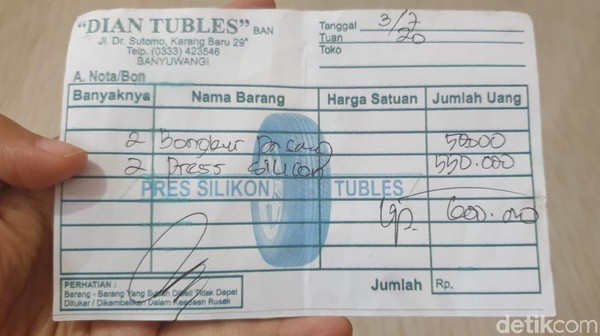 "DIAN TUBLES" BAN
Jl. Dr. Sutomo, Karang Baru 29ᴬ
Telp. (0333) 423546
BANYUWANGI
Tanggal 3/7
Tuan 20
Toko
A. Nota/Bon
Banyaknya Nama Barang Harga Satuan Jumlah Uang
2 Bongkar pasang 50000
2 Press silicon 550.000
PRES SILIKON TUBLES
Rp. 600.000
PERHATIAN :
Barang - Barang Yang Sudah Dibeli Tidak Dapat
Ditukar / Dikembalikan Dalam Keadaan Rusak
Jumlah Rp.
detikcom